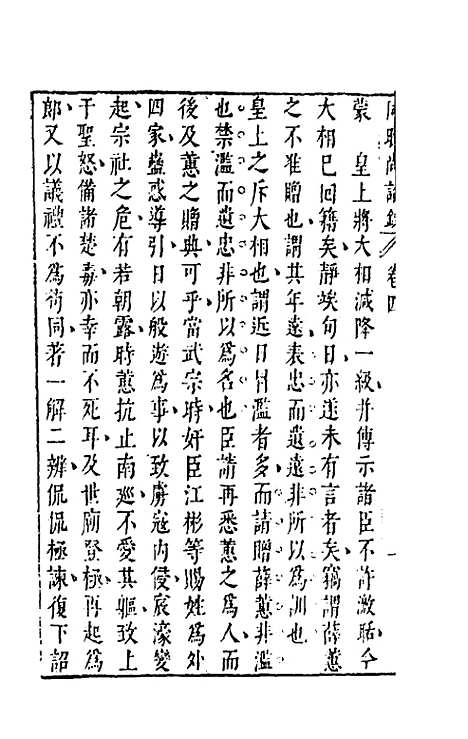 蒙　皇上將大相減降一級并傳示諸臣不許激聒今
大相已回籍矣靜竢旬日亦遂未有言者矣竊謂薛蕙
之不准贈也謂其年遠表忠而遺遠非所以為訓也
皇上之斥大相也謂近日冒濫者多而請贈薛蕙非濫
也禁濫而遺忠非所以為名也臣請再悉蕙之為人而
後及蕙之贈典可乎當武宗時奸臣江彬等賜姓為外
四家蠱惑導引日以般遊為事以致虜寇內侵宸濠變
起宗社之危有若朝露時蕙抗止南巡不愛其軀致上
干聖怒備諸楚毒亦幸而不死耳及世廟登極再起為
郎又以議禮不為苟同著一解二辨侃侃極諫復下詔
卷四